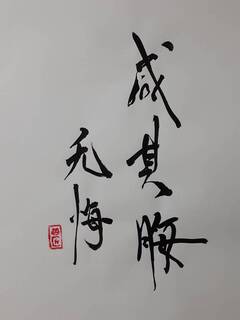 咸其脢
无悔